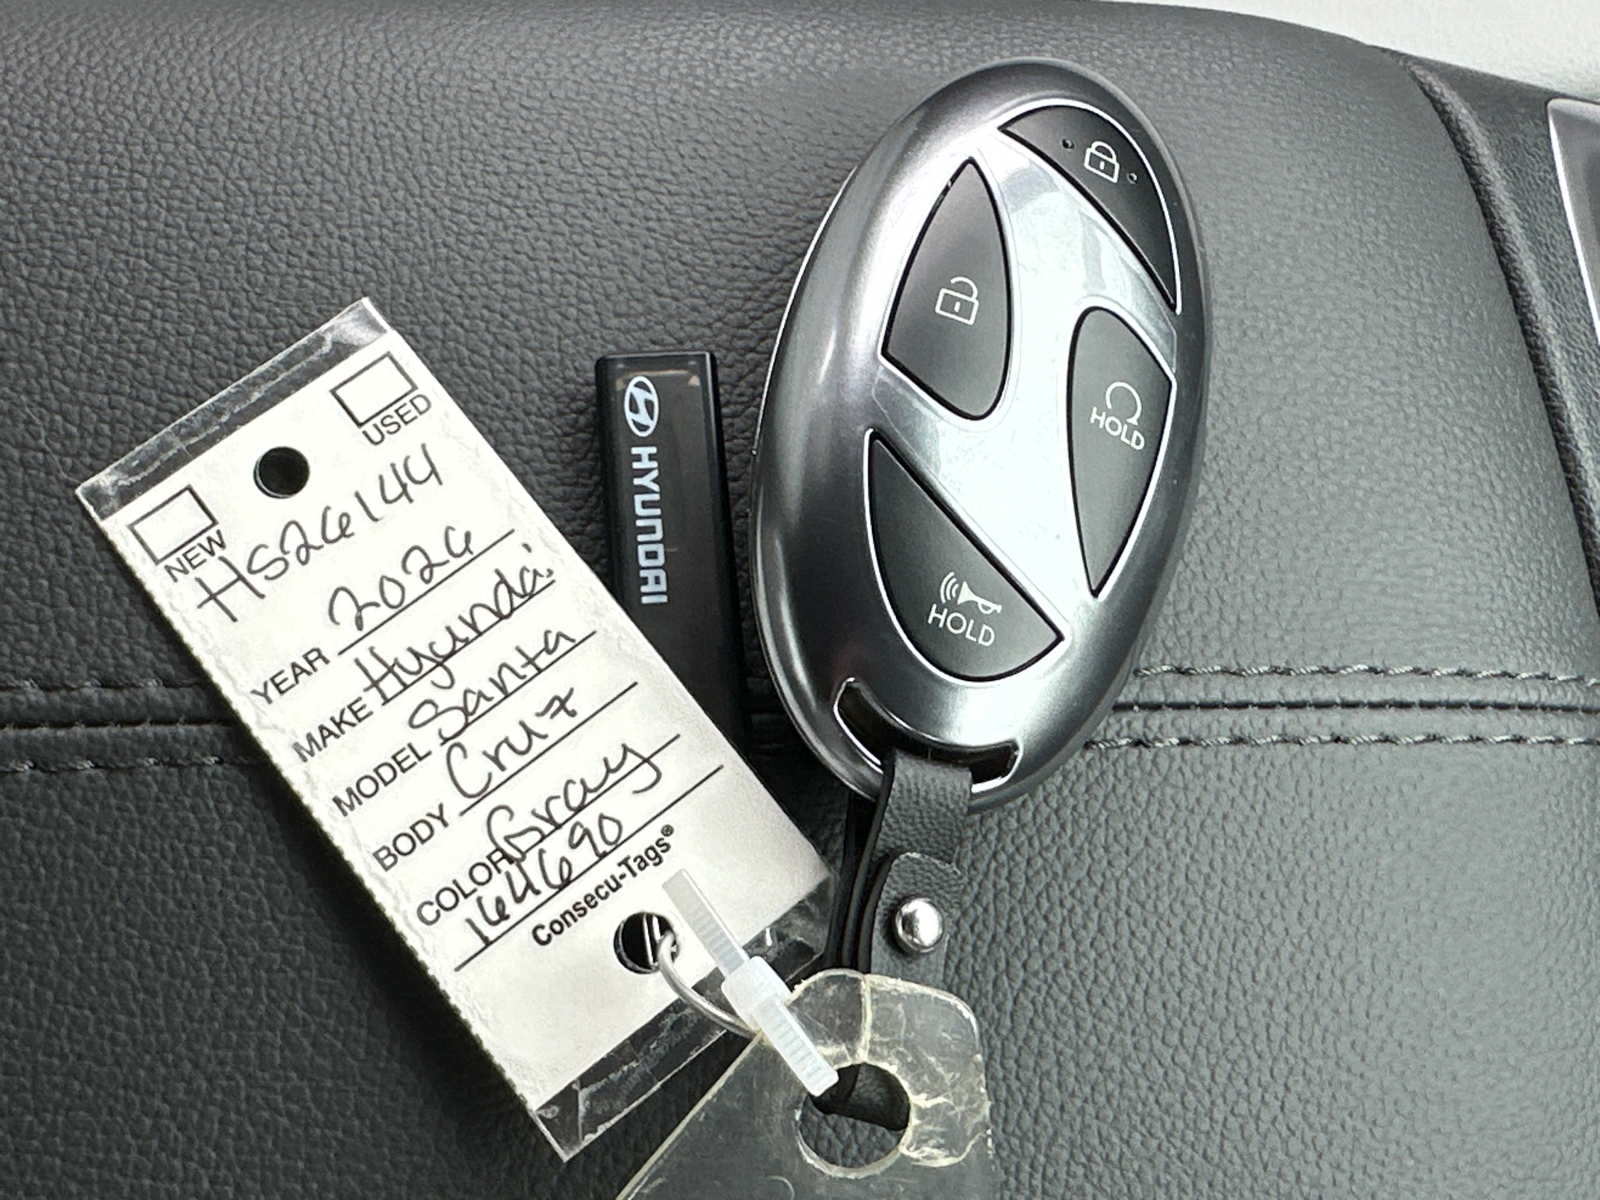 USED
NEW
HS26144
YEAR 2026
MAKE Hyundai
MODEL Santa
BODY Cruz
COLOR Gray
164690
Consecu-Tags®
HYUNDAI
HOLD
HOLD